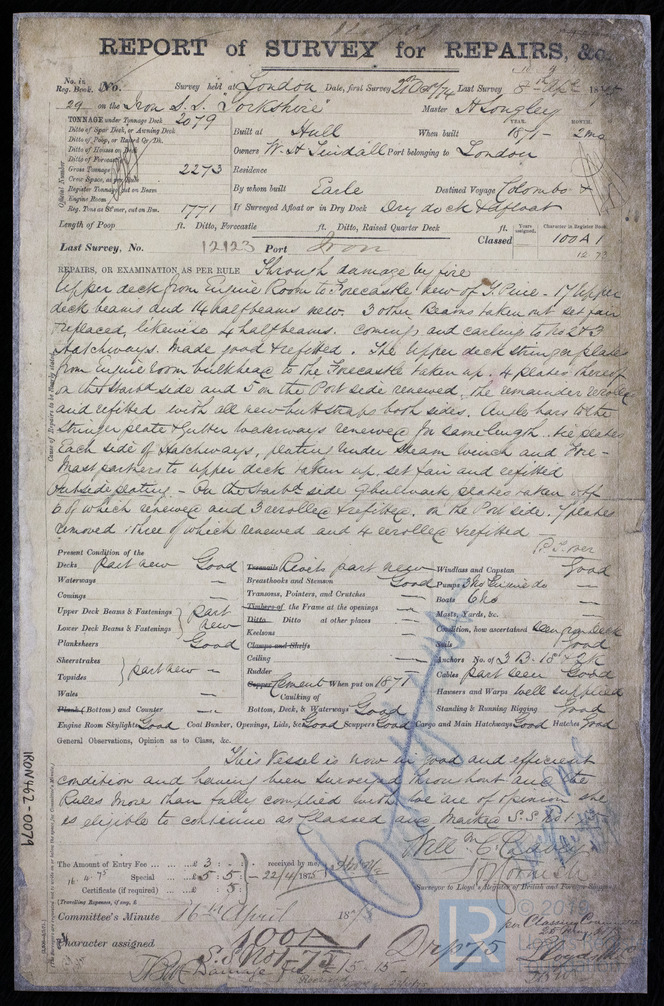 REPORT of SURVEY for REPAIRS, &c.
No. in Reg. Book. No. Survey held at London Date, first Survey Last Survey 8th Apl 1875
29 on the Iron S.S. "Yorkshire" Master H Longley
TONNAGE under Tonnage Deck 2079
Ditto of Spar Deck, or Awning Deck
Ditto of Poop, or Raised Qr. Dk.
Ditto of Houses on Deck
Ditto of Forecastle
Gross Tonnage 2273
Crew Space, as per Rule
Register Tonnage cut on Beam
Engine Room
Reg. Tons as St'mer, cut on Bm. 1771
Official Number
Built at Hull When built YEAR. 1871 - MONTH. 2mo
Owners W. H. Tindall Port belonging to London
Residence
By whom built Earle Destined Voyage Colombo &
If Surveyed Afloat or in Dry Dock Dry dock & afloat
Length of Poop ft. Ditto, Forecastle ft. Ditto, Raised Quarter Deck ft.
Last Survey, No. 12123 Port Iron Classed Years assigned. Character in Register Book 100A1
12.73
REPAIRS, OR EXAMINATION, AS PER RULE Through damage by fire
Upper deck from Engine Room to Forecastle new of Y. Pine - 17 Upper
deck beams and 14 half beams new. 3 other Beams taken out set fair
replaced, likewise 4 half beams. Comings and carling to No 2 & 3
Hatchways. Made good & refitted. The Upper deck stringer plates
from Engine room bulkhead to the Forecastle taken up. 4 plates thereof
on the Starbd side and 5 on the Port side renewed, the remainder rerolled
and refitted with all new butt straps both sides. Angle bars to the
stringer plate & Gutter waterways renewed for same length. tie plates
Each side of Hatchways, plating under steam winch and Fore-
Mast partners to upper deck taken up, set fair and refitted
Outside plating - On the Starbd side 9 bulwark plates taken off
6 of which renewed and 3 rerolled & refitted. on the Port side. 7 plates
removed three of which renewed and 4 rerolled & refitted
P.T. over
Present Condition of the
Decks part new Good
Waterways
Comings
Upper Deck Beams & Fastenings } part
Lower Deck Beams & Fastenings } new
Planksheers Good
Sheerstrakes
Topsides } part new
Wales
Plank (Bottom) and Counter
Treenails Rivets part new
Breasthooks and Stemson Good
Transoms, Pointers, and Crutches
Timbers of the Frame at the openings
Ditto Ditto at other places
Keelsons
Clamps and Shelfs
Ceiling
Rudder
Copper Cement When put on 1871
Caulking of
Bottom, Deck, & Waterways Good
Windlass and Capstan Good
Pumps 3 No Engine do
Boats 6 No
Masts, Yards, &c.
Condition, how ascertained seen from deck
Sails Good
Anchors No. of 3 B. 1 S & 2 K
Cables part seen Good
Hawsers and Warps well supplied
Standing & Running Rigging Good
Engine Room Skylights Good Coal Bunker, Openings, Lids, &c. Good Scuppers Good Cargo and Main Hatchways Good Hatches Good
General Observations, Opinion as to Class, &c.
This Vessel is now in good and efficient
condition and having been Surveyed throughout and the
Rules more than fully complied with we are of opinion she
is eligible to continue as Classed and Marked S.S. No 1-75
The Amount of Entry Fee ... £ 3 : - : - received by me,
16.4.75 Special ... £ 5 : 5 : - 22/4/1875
Certificate (if required) .. £ : 5 :
(Travelling Expenses, if any, £ )
Surveyor to Lloyd's Register of British and Foreign Shipping
Committee's Minute 16th April 1875
Character assigned 100A1
S.S. No 1-75
Damage Fee £15-15-
IRON 462-0079
LR
© 20